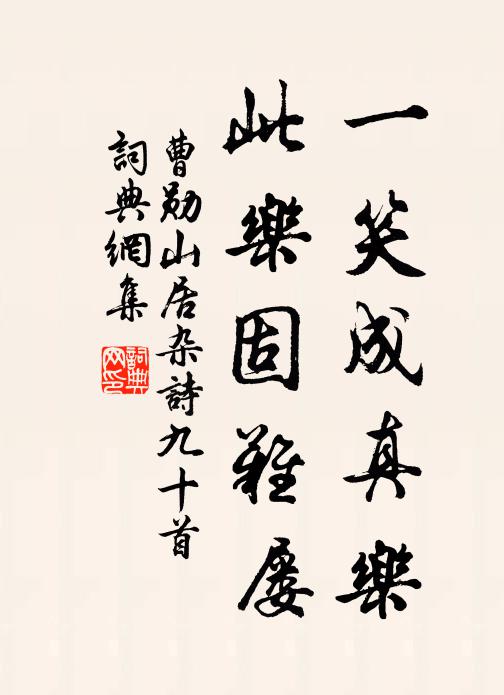 一笑成真樂
此樂固難屡
曹勛山居杂詩九十首
詞典網集
詞典網印